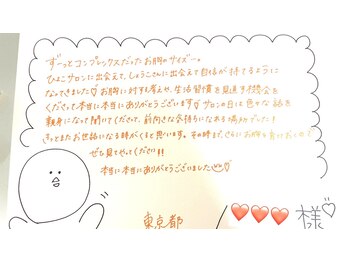 ずーっとコンプレックスだったお胸のサイズ…。
ひよこサロンに出会えて、しょうこさんに出会えて自信が持てるように
なってきました♡お胸に対する考えや、生活習慣を見直す機会を
くださって、本当に本当にありがとうございます♡サロンの日は色々な話を
親身になって聞いてくださって、前向きな気持ちになれる場所でした！
きっとまたお世話になる時がくると思います。その時まで、ぐんとお胸を育てておくので
ぜひ見てやってください!!
本当に本当にありがとうございました♡
東京都
様♡